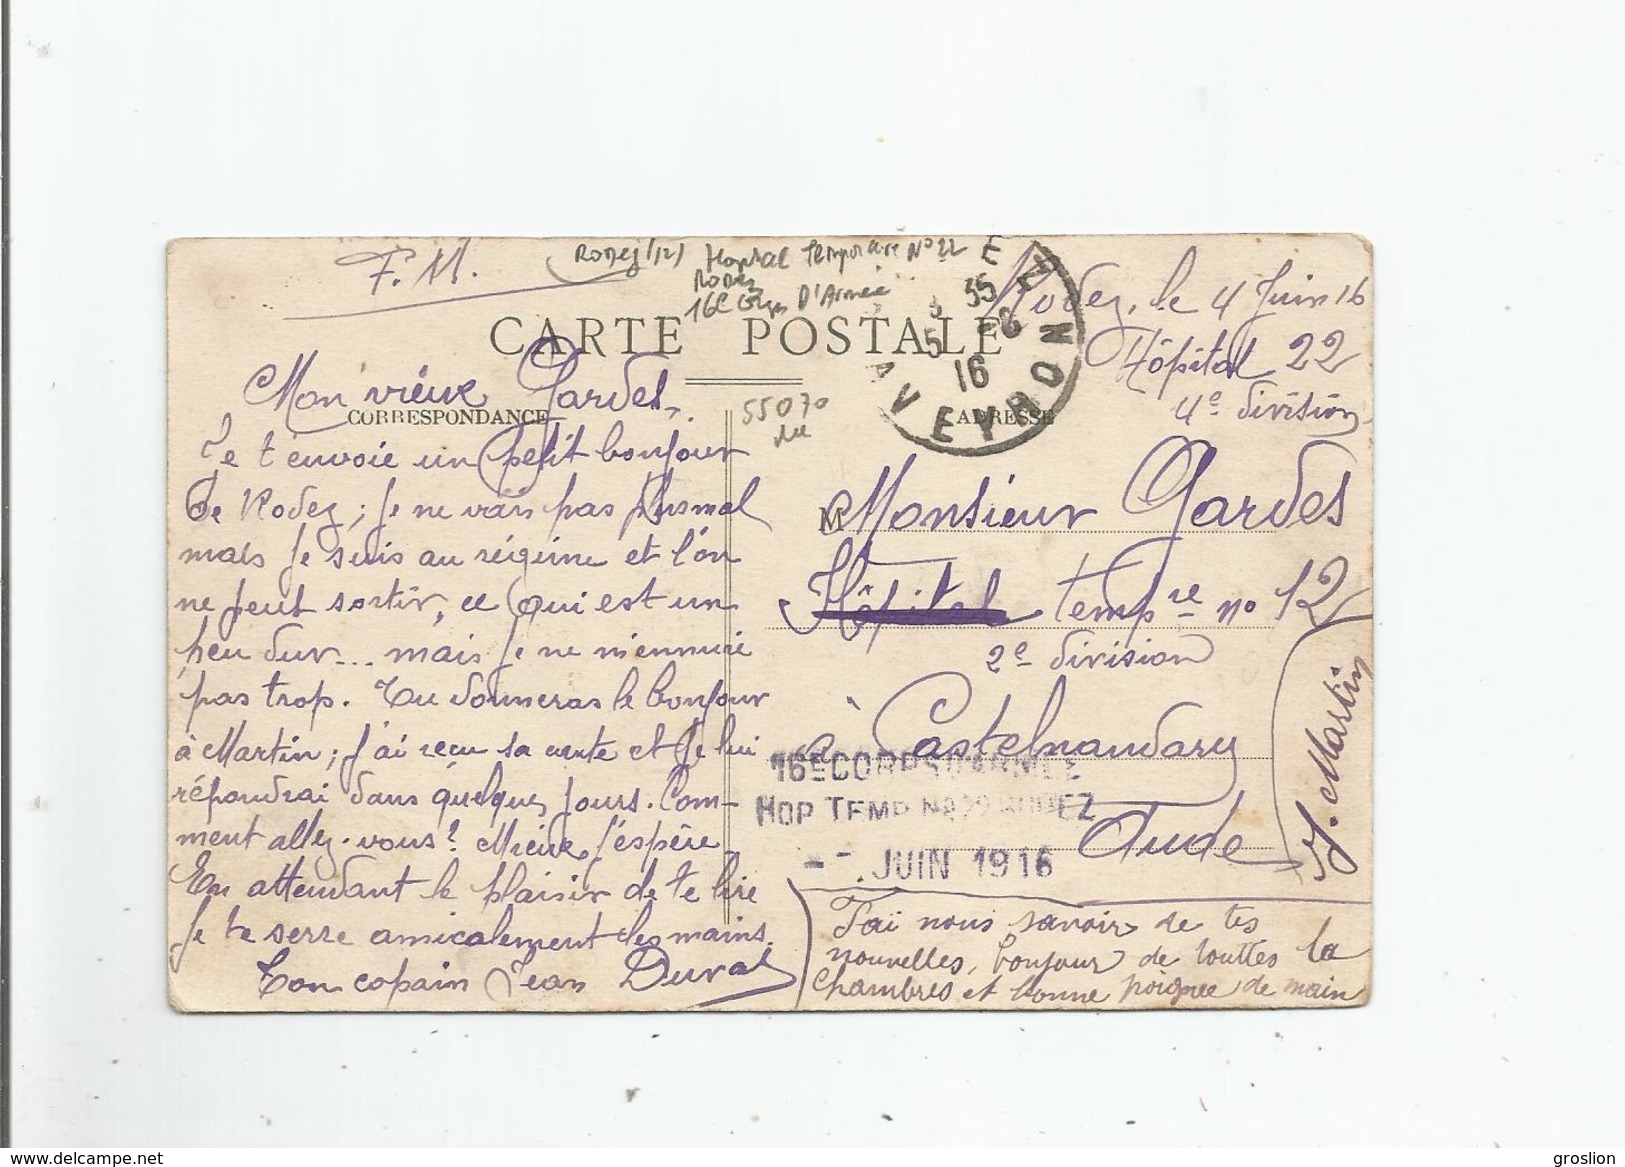 F. M.
Rodez (12) Hopital Temporaire N° 22
Rodez
16e Corps D'Armée
CARTE POSTALE
CORRESPONDANCE
ADRESSE
55070
AVEYRON
5 16
Rodez, le 4 Juin 16
Hôpital 22
4e division
Mon vieux Gardes,
Je t'envoie un petit bonjour
de Rodez ; je ne vais pas plus mal
mais je suis au régime et l'on
ne peut sortir, ce qui est un
peu dur... mais je ne m'ennuie
pas trop. Tu donneras le bonjour
à Martin ; j'ai reçu sa carte et je lui
répondrai dans quelques jours. Com-
ment allez-vous ? Mieux, j'espère.
En attendant le plaisir de te lire
je te serre amicalement les mains.
Ton copain Jean Duval
M Monsieur Gardes
Hôpital tempre no 12
2e division
à Castelnaudary
Aude
16E CORPS D'ARMEE
HOP TEMP No 22 RODEZ
- JUIN 1916
Fai nous savoir de tes
nouvelles, bonjour de touttes la
chambres et bonne poignee de main
J. Martin
delcampe.net
groslion